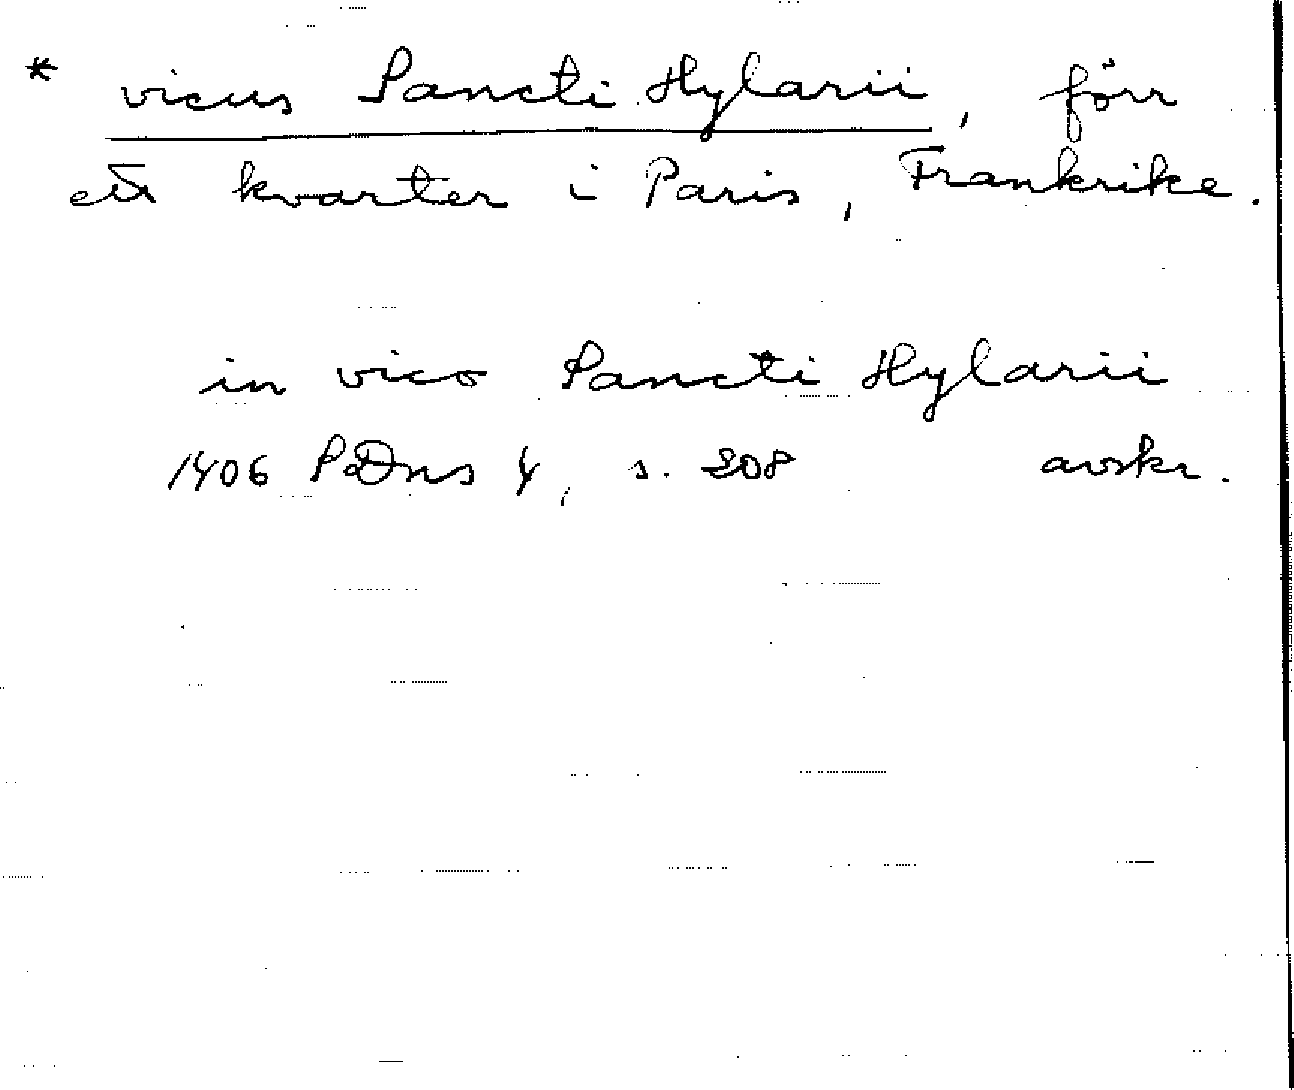 * vicus Sancti Hylarii, förr
ett kvarter i Paris, Frankrike.
in vico Sancti Hylarii
1406 SDns 4, s. 208 avskr.